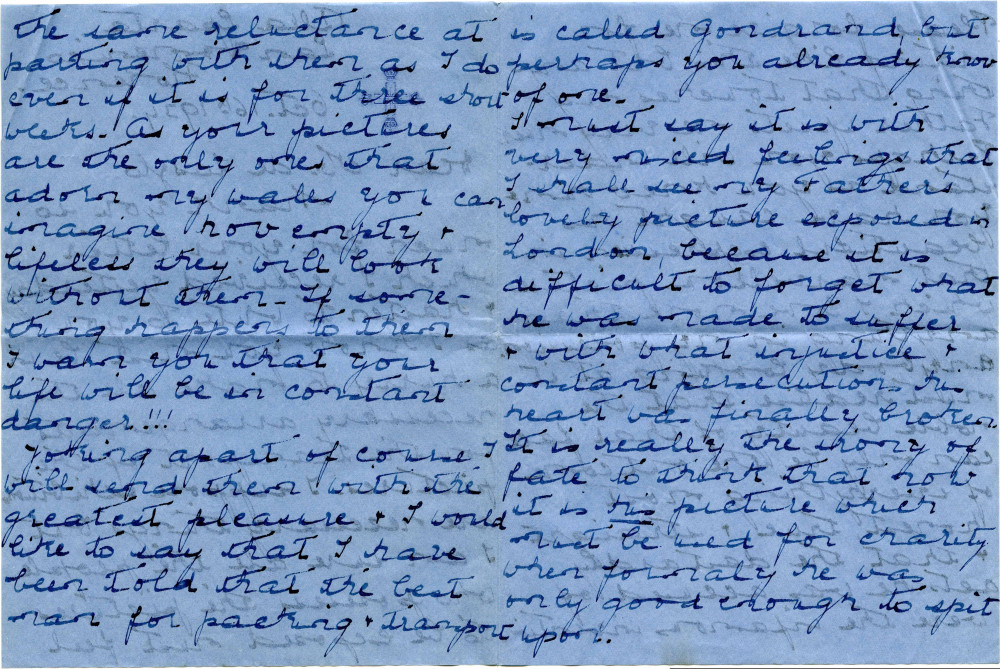 the same reluctance at
parting with them as I do
even if it is for three short
weeks. As your pictures
are the only ones that
adorn my walls you can
imagine how empty &
lifeless they will look
without them - If some-
thing happens to them
I warn you that your
life will be in constant
danger!!!
Joking apart of course I
will send them with the
greatest pleasure & I would
like to say that I have
been told that the best
man for packing & transport
is called Gondrand, but
perhaps you already know
of one.
I must say it is with
very mixed feelings that
I shall see my Father's
lovely picture exposed in
London, because it is
difficult to forget what
he was made to suffer
& with what injustice &
constant persecution his
heart was finally broken.
It is really the irony of
fate to think that now
it is his picture which
must be used for charity
when formaly he was
only good enough to spit
upon.